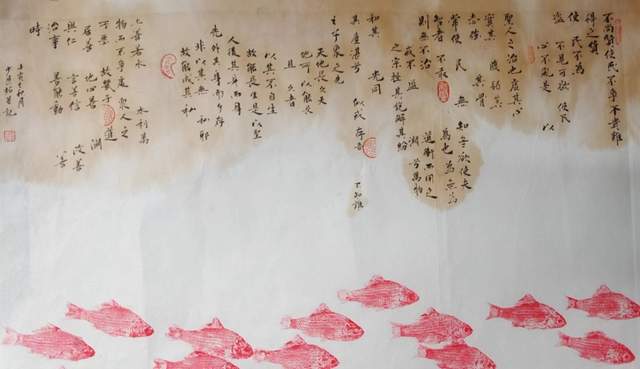 不尚賢使民不爭不貴難
得之貨
使民不為
盜不見可欲使民
心不亂是以
聖人之治也
其心
實其腹弱其
志強其骨
常使民無知無欲使夫
智者不敢為也為無為
則無不治道沖而用之
或不盈淵兮萬物
之宗挫其銳解其紛
和其光同
其塵湛兮似或存吾不知誰
之子象帝之先
天地長久天
地所以能長
且久者
以其不自生
故能長生是以聖
人後其身而身
先外其身而身存
非以其無私邪
故能成其私
上善若水水利萬
物而不爭處眾人之
所惡故幾於道
居善地心善淵
與仁言善信政善
治事善能動善
時